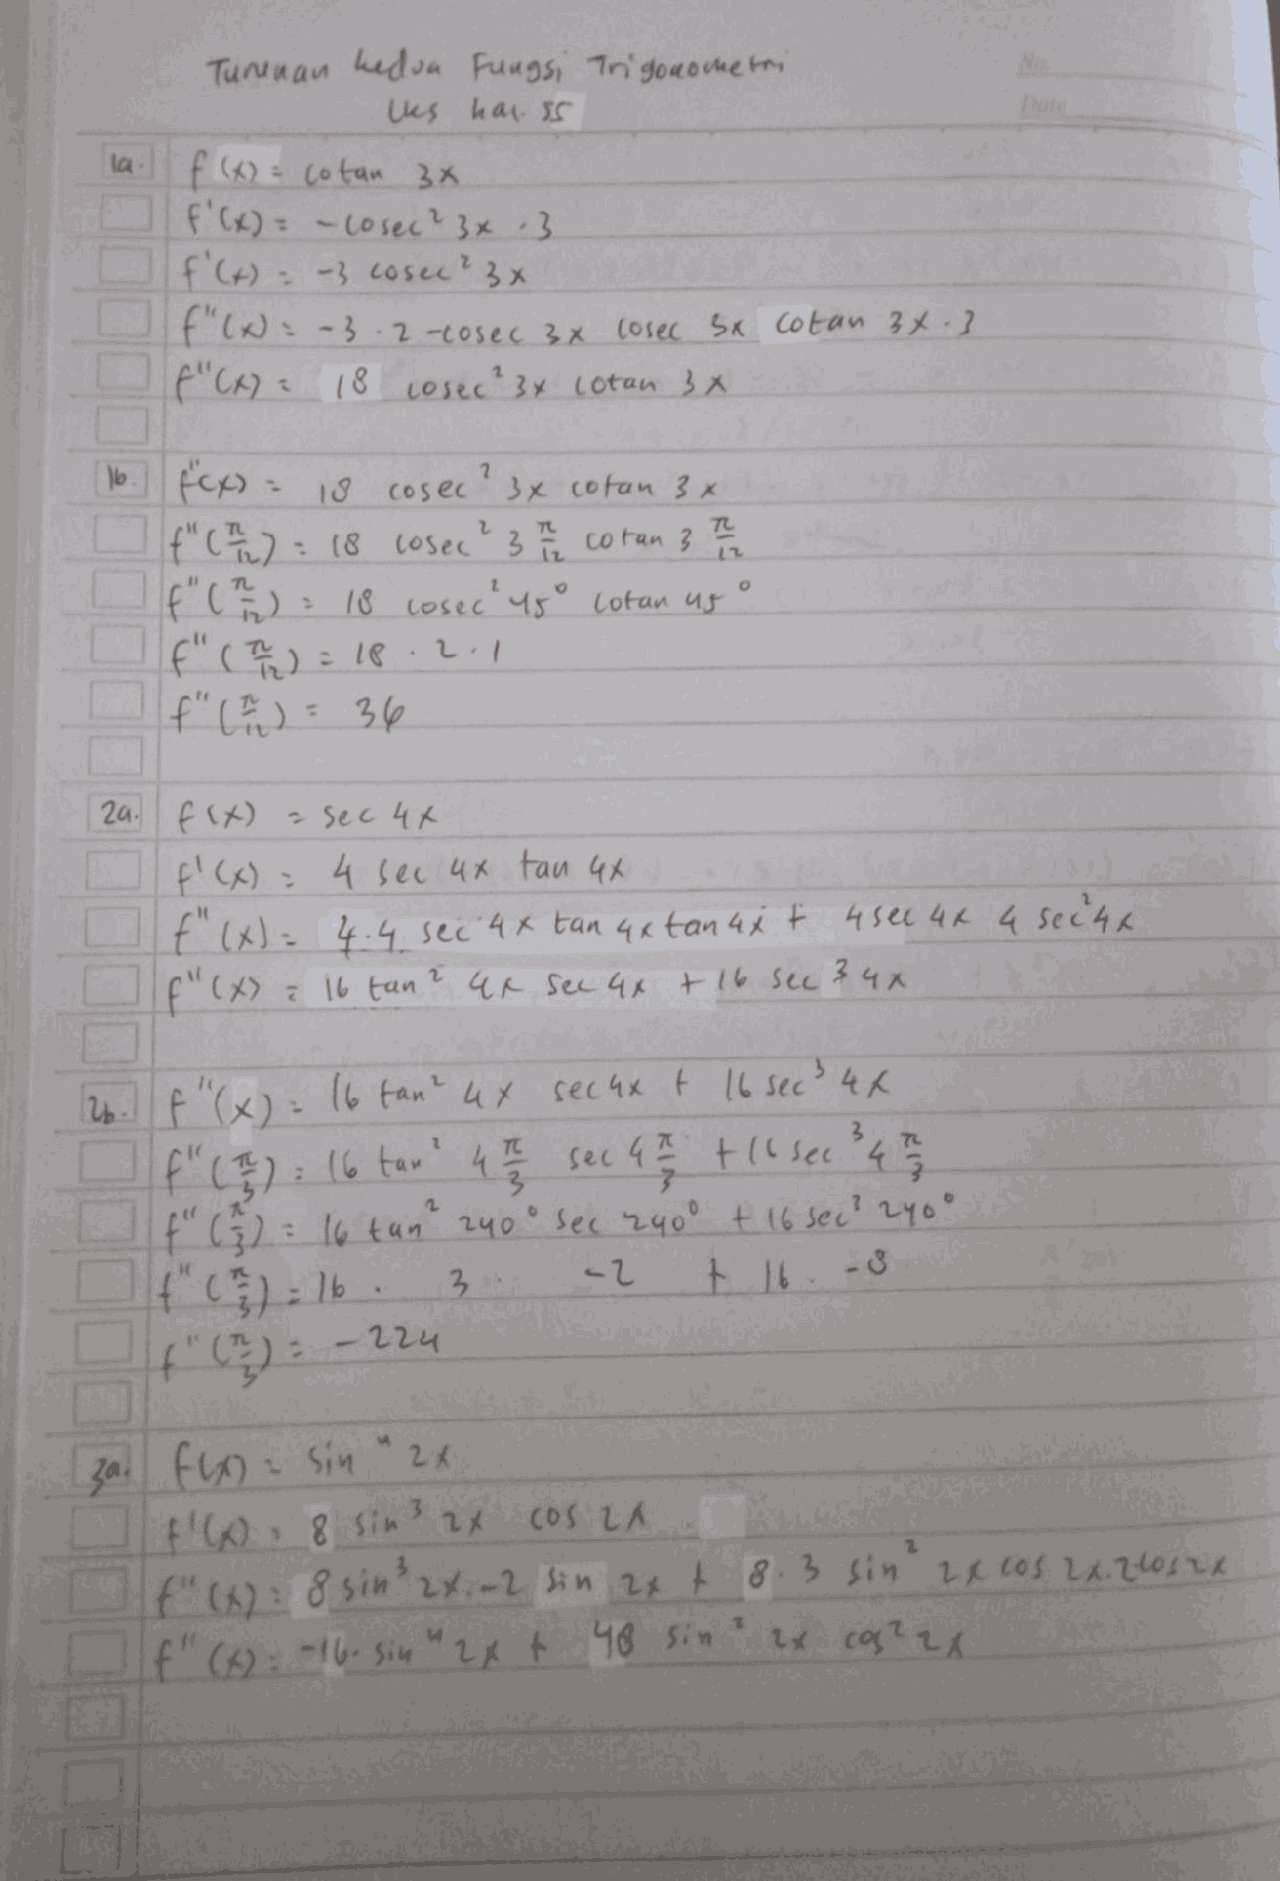 Turunan kedua Fungsi Trigonometri
No.
LKS hal. 55
Date
1a. f(x) = cotan 3x
f'(x) = -cosec² 3x · 3
f'(x) = -3 cosec² 3x
f"(x) = -3 · 2 -cosec 3x cosec 3x cotan 3x · 3
f"(x) = 18 cosec² 3x cotan 3x
1b. f"(x) = 18 cosec² 3x cotan 3x
f"(π/12) = 18 cosec² 3 π/12 cotan 3 π/12
f"(π/12) = 18 cosec² 45° cotan 45°
f"(π/12) = 18 · 2 · 1
f"(π/12) = 36
2a. f(x) = sec 4x
f'(x) = 4 sec 4x tan 4x
f"(x) = 4·4 sec 4x tan 4x tan 4x + 4 sec 4x 4 sec² 4x
f"(x) = 16 tan² 4x sec 4x + 16 sec³ 4x
2b. f"(x) = 16 tan² 4x sec 4x + 16 sec³ 4x
f"(π/3) = 16 tan² 4 π/3 sec 4 π/3 + 16 sec³ 4 π/3
f"(π/3) = 16 tan² 240° sec 240° + 16 sec³ 240°
f"(π/3) = 16 · 3 · -2 + 16 · -8
f"(π/3) = -224
3a. f(x) = sin⁴ 2x
f'(x) = 8 sin³ 2x cos 2x
f"(x) = 8 sin³ 2x · -2 sin 2x + 8 · 3 sin² 2x cos 2x · 2 cos 2x
f"(x) = -16 · sin⁴ 2x + 48 sin² 2x cos² 2x